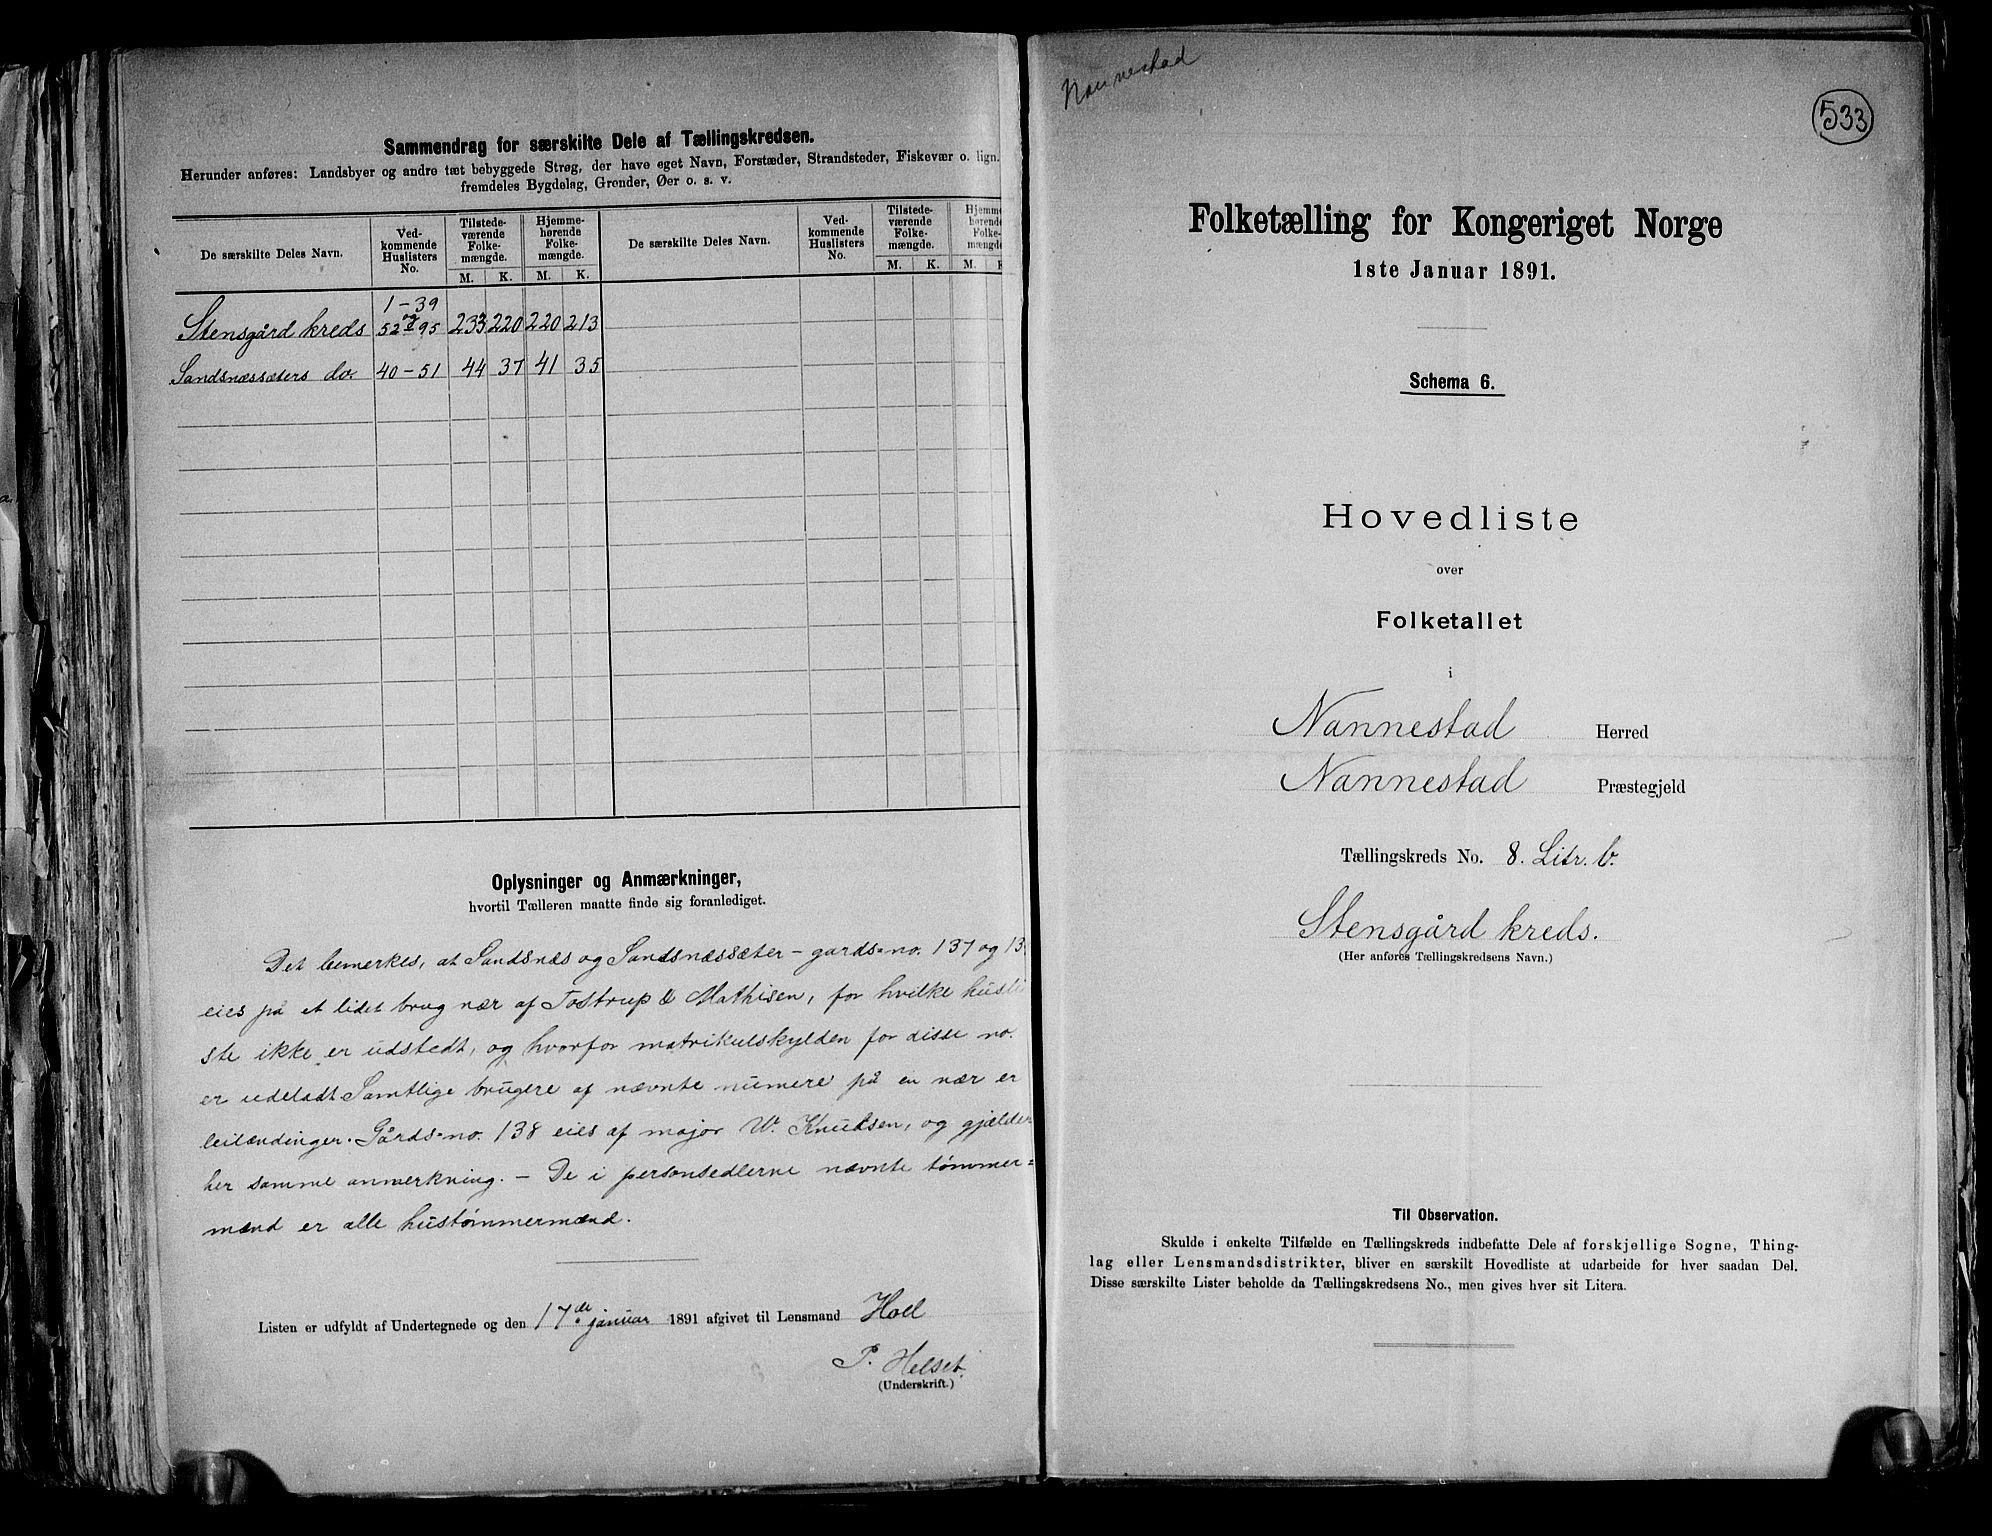 Sammendrag for særskilte Dele af Tællingskredsen.
Herunder anføres: Landsbyer og andre tæt bebyggede Strøg, der have eget Navn, Forstæder, Strandsteder, Fiskevær o. lign.
fremdeles Bygdelag, Grender, Øer o. s. v.
De særskilte Deles Navn. Ved-kommende Huslisters No. Tilstede-værende Folke-mængde. Hjemme-hørende Folke-mængde. De særskilte Deles Navn. Ved-kommende Huslisters No. Tilstede-værende Folke-mængde. Hjemme-hørende Folke-mængde
M. K. M. K. M. K. M. K
1-39
og
Stensgård kreds 52-95 233 220 220 213
Sandsnæssæters do. 40-51 44 37 41 35
Oplysninger og Anmærkninger,
hvortil Tælleren maatte finde sig foranlediget.
Det bemerkes, at Sandsnæs og Sandsnæssæter - gards-no. 137 og 13
eies på et lidet brug nær af Tostrup & Mathisen, for hvilke husli
ste ikke er udstedt, og hvorfor matrikulskylden for disse no.
er udeladt Samtlige brugere af nævnte numere på en nær er
leilændinger. Gårds-no. 138 eies af major W. Knudsen, og gjælder
her samme anmerkning. - De i personsedlerne nævnte tømmer=
mænd er alle hustømmermænd.
Listen er udfyldt af Undertegnede og den 17de januar 1891 afgivet til Lensmand Holl
P. Helset.
(Underskrift.)
Nannestad
533
Folketælling for Kongeriget Norge
1ste Januar 1891.
Schema 6.
Hovedliste
over
Folketallet
i
Nannestad Herred
Nannestad Præstegjeld
Tællingskreds No. 8. Litr. b.
Stensgård kreds.
(Her anføres Tællingskredsens Navn.)
Til Observation.
Skulde i enkelte Tilfælde en Tællingskreds indbefatte Dele af forskjellige Sogne, Thing-
lag eller Lensmandsdistrikter, bliver en særskilt Hovedliste at udarbeide for hver saadan Del.
Disse særskilte Lister beholde da Tællingskredsens No., men gives hver sit Litera.